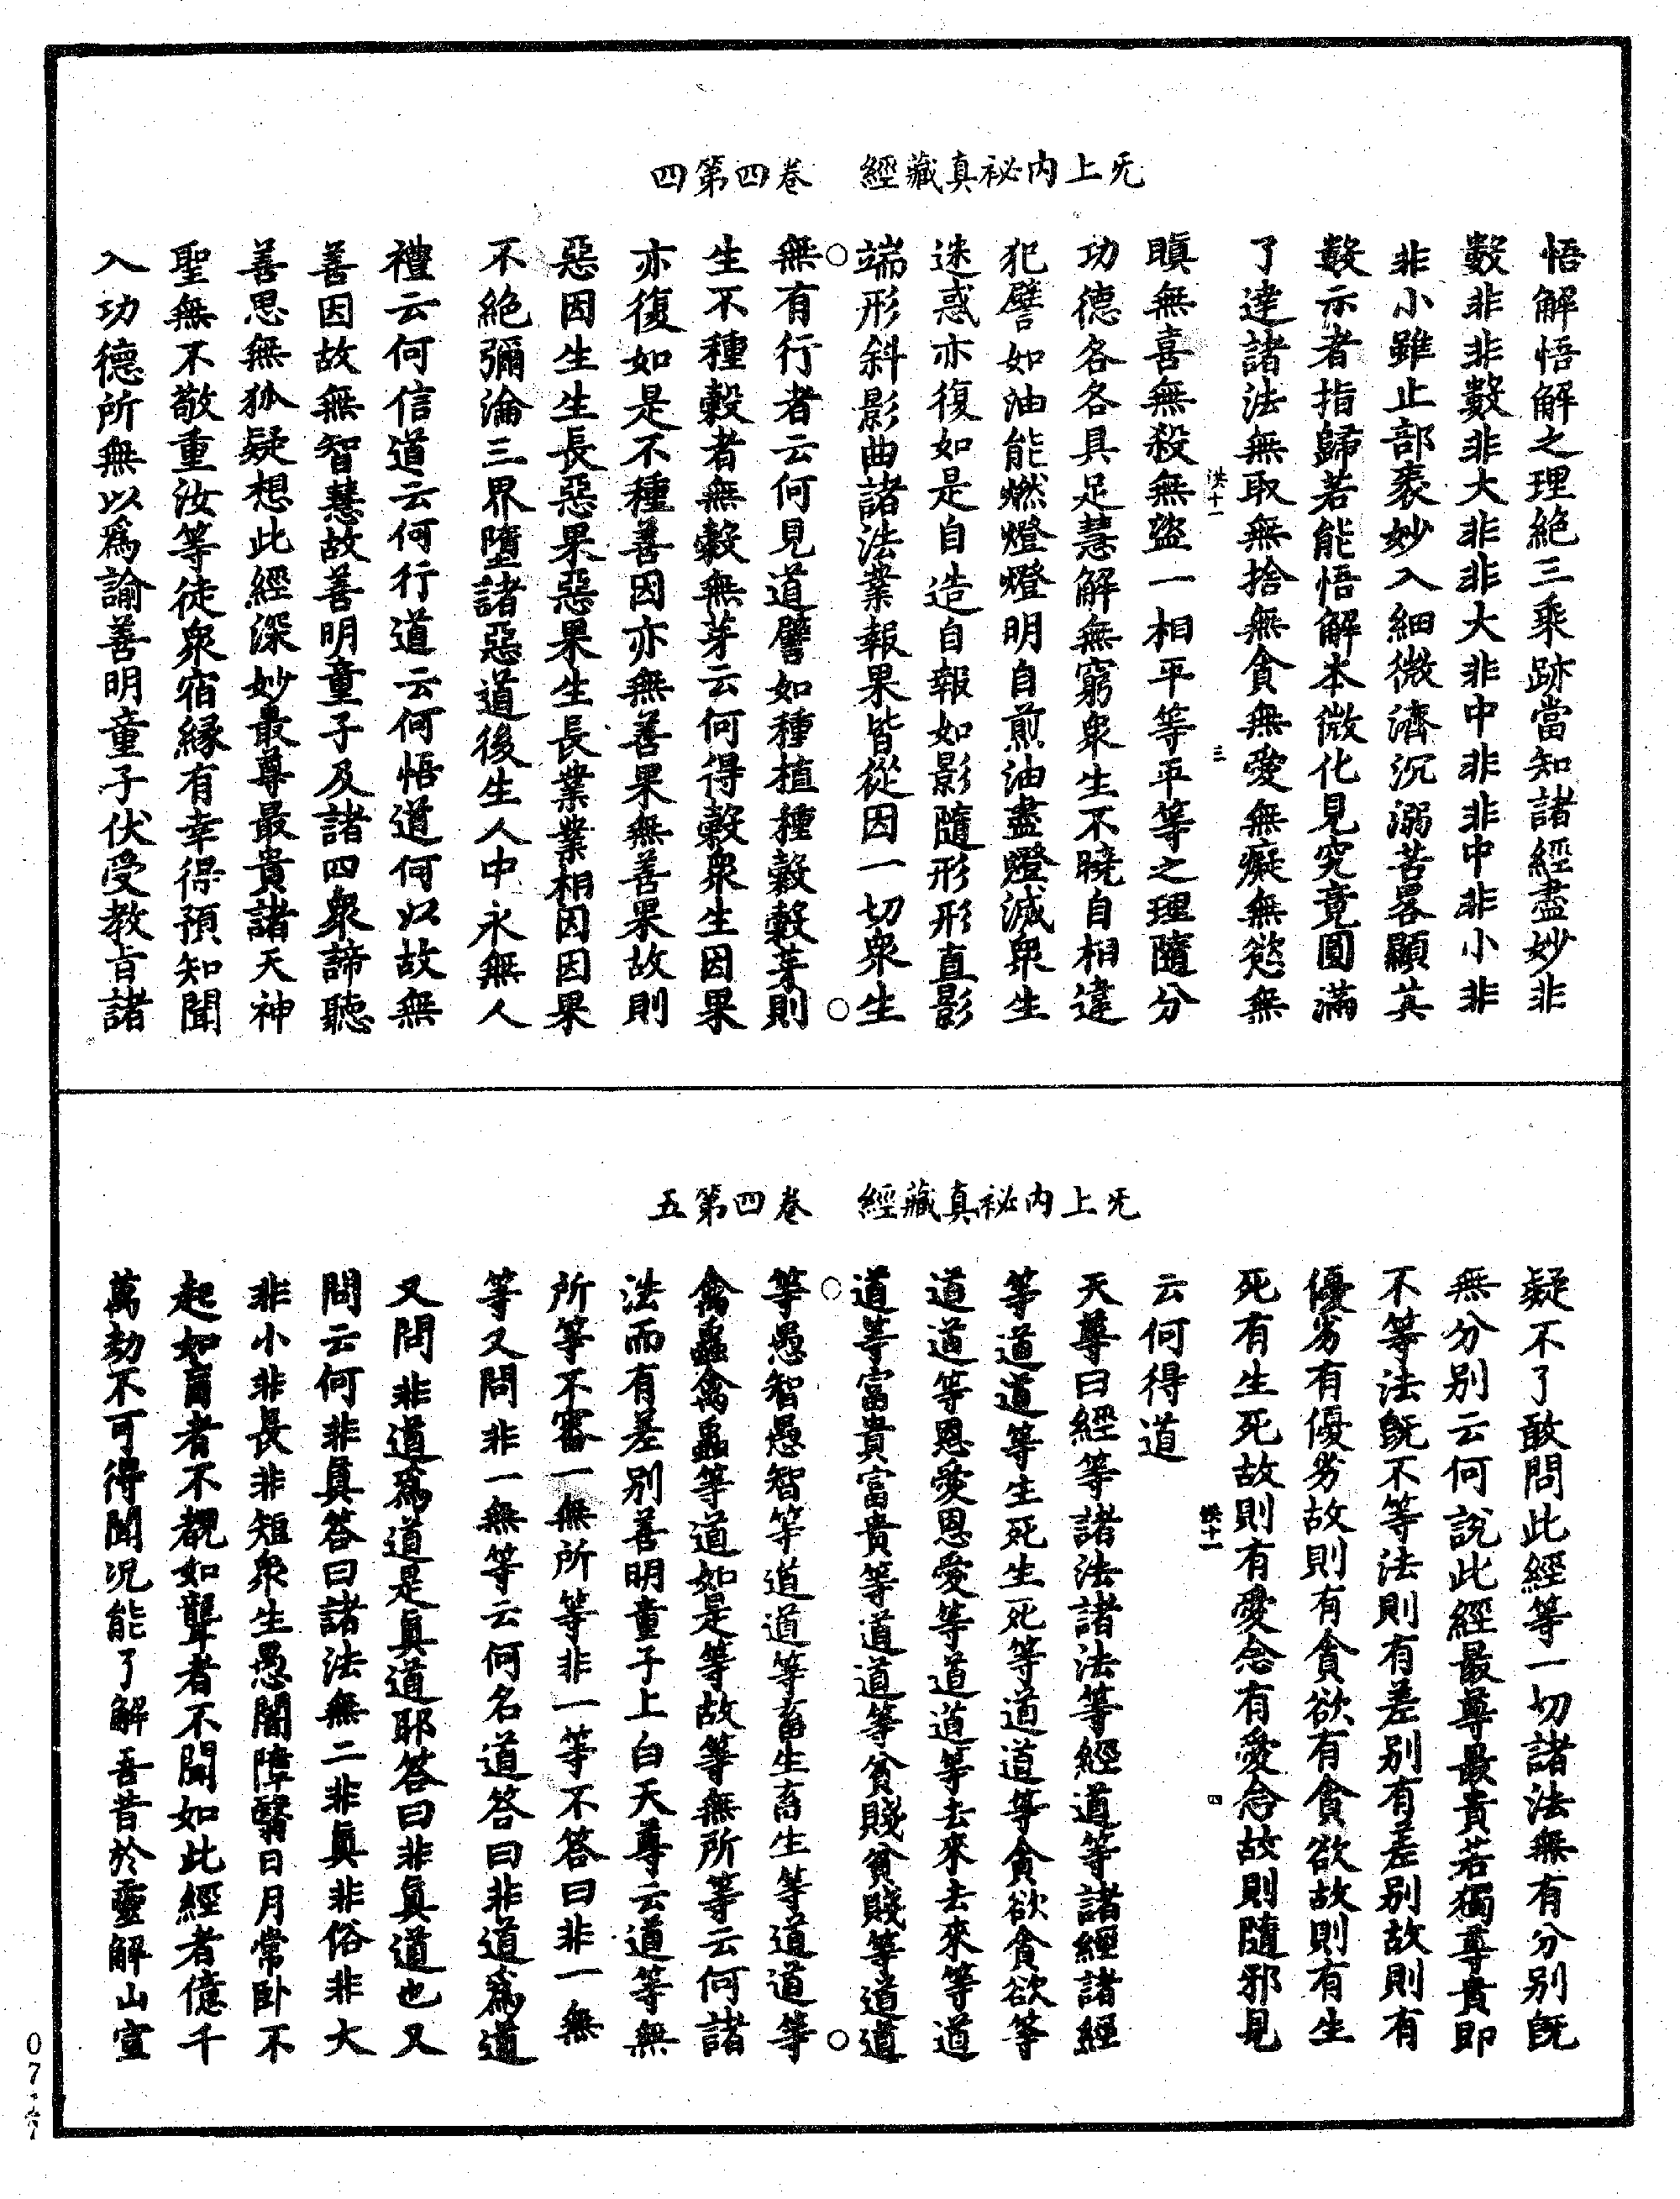 无上內祕真藏經 卷四第四
悟解悟解之理絕三乘跡當知諸經盡妙非
數非非數非大非非大非中非非中非小非
非小雖止部袠妙入細微濟沉溺苦畧顯其
數示者指歸若能悟解本微化見究竟圓滿
了達諸法無取無捨無貪無愛無癡無慾無
染十一 三
瞋無喜無殺無盜一相平等平等之理隨分
功德各各具足慧解無窮衆生不曉自相違
犯譬如油能燃燈燈明自煎油盡燈滅衆生
迷惑亦復如是自造自報如影隨形形直影
端形斜影曲諸法業報果皆從因一切衆生
無有行者云何見道譬如種植種穀穀芽則
生不種穀者無穀無芽云何得穀衆生因果
亦復如是不種善因亦無善果無善果故則
惡因生生長惡果惡果生長業業相因因果
不絕彌淪三界墮諸惡道後生人中永無人
禮云何信道云何行道云何悟道何以故無
善因故無智慧故善明童子及諸四衆諦聽
善思無狐疑想此經深妙最尊最貴諸天神
聖無不敬重汝等徒衆宿緣有幸得預知聞
入功德所無以爲諭善明童子伏受教旨諸
无上內祕真藏經 卷四第五
疑不了敢問此經等一切諸法無有分別旣
無分別云何說此經最尊最貴若獨尊貴即
不等法旣不等法則有差別有差別故則有
優劣有優劣故則有貪欲有貪欲故則有生
死有生死故則有愛念有愛念故則隨邪見
染十一 四
云何得道
天尊曰經等諸法諸法等經道等諸經諸經
等道道等生死生死等道道等貪欲貪欲等
道道等恩愛恩愛等道道等去來去來等道
道等富貴富貴等道道等貧賤貧賤等道道
等愚智愚智等道道等畜生畜生等道道等
禽蟲禽蟲等道如是等故等無所等云何諸
法而有差別善明童子上白天尊云道等無
所等不審一無所等非一等不答曰非一無
等又問非一無等云何名道答曰非道爲道
又問非道爲道是真道耶答曰非真道也又
問云何非真答曰諸法無二非真非俗非大
非小非長非短衆生愚闇障翳日月常卧不
起如盲者不覩如聾者不聞如此經者億千
萬劫不可得聞況能了解吾昔於靈解山宣